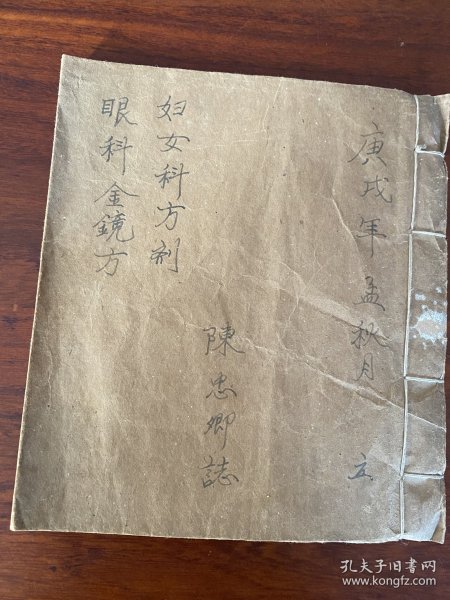 庚戌年孟秋月 立
陳忠卿誌
妇女科方剂
眼科金鏡方
孔夫子旧书网
www.kongfz.com